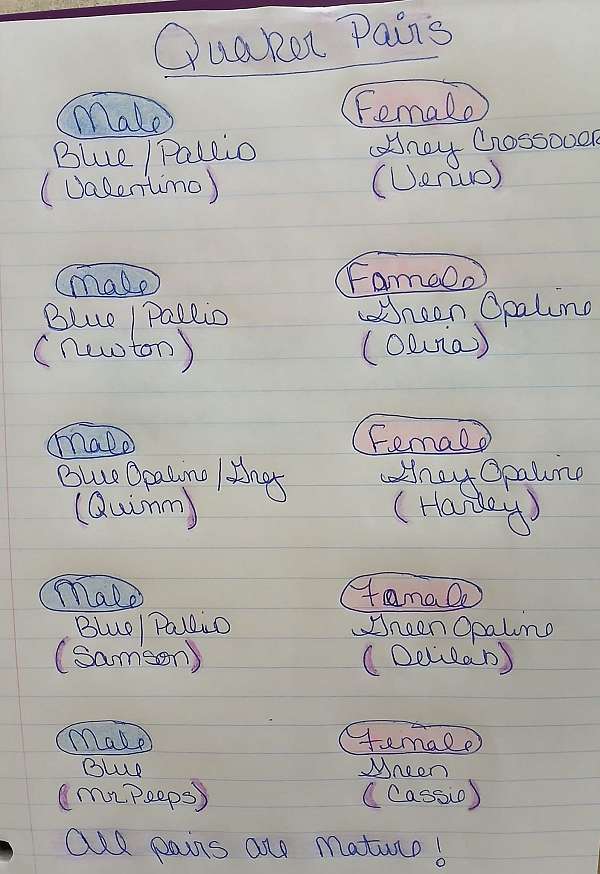 Quaker Pairs
Male Female
Blue / Pallid Grey Crossover
(Valentino) (Venus)
Male Female
Blue / Pallid Green Opaline
(Newton) (Olivia)
Male Female
Blue Opaline / Grey Grey Opaline
(Quinn) (Harley)
Male Female
Blue / Pallid Green Opaline
(Samson) (Delilah)
Male Female
Blue Green
(Mr Peeps) (Cassie)
All pairs are Mature!